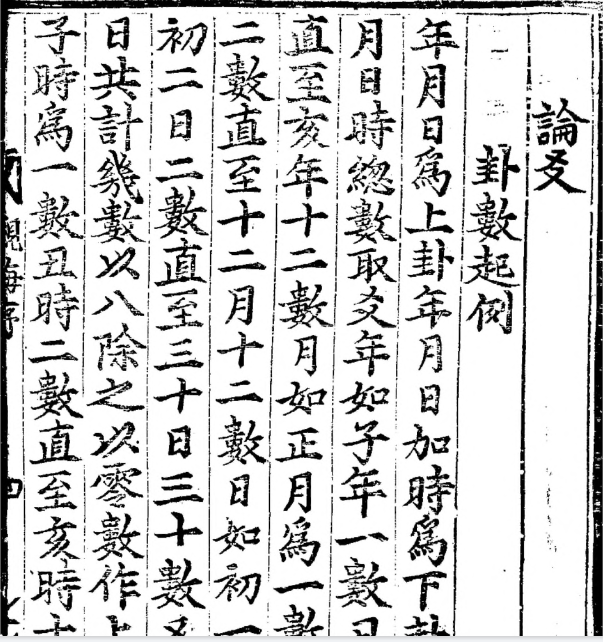 論爻
卦數起例
年月日爲上卦年月日加時爲下卦
月日時總數取爻年如子年一數
直至亥年十二數月如正月爲一數
二數直至十二月十二數日如初一
初二日二數直至三十日三十數
日共計幾數以八除之以零數作
子時爲一數丑時二數直至亥時
觀梅